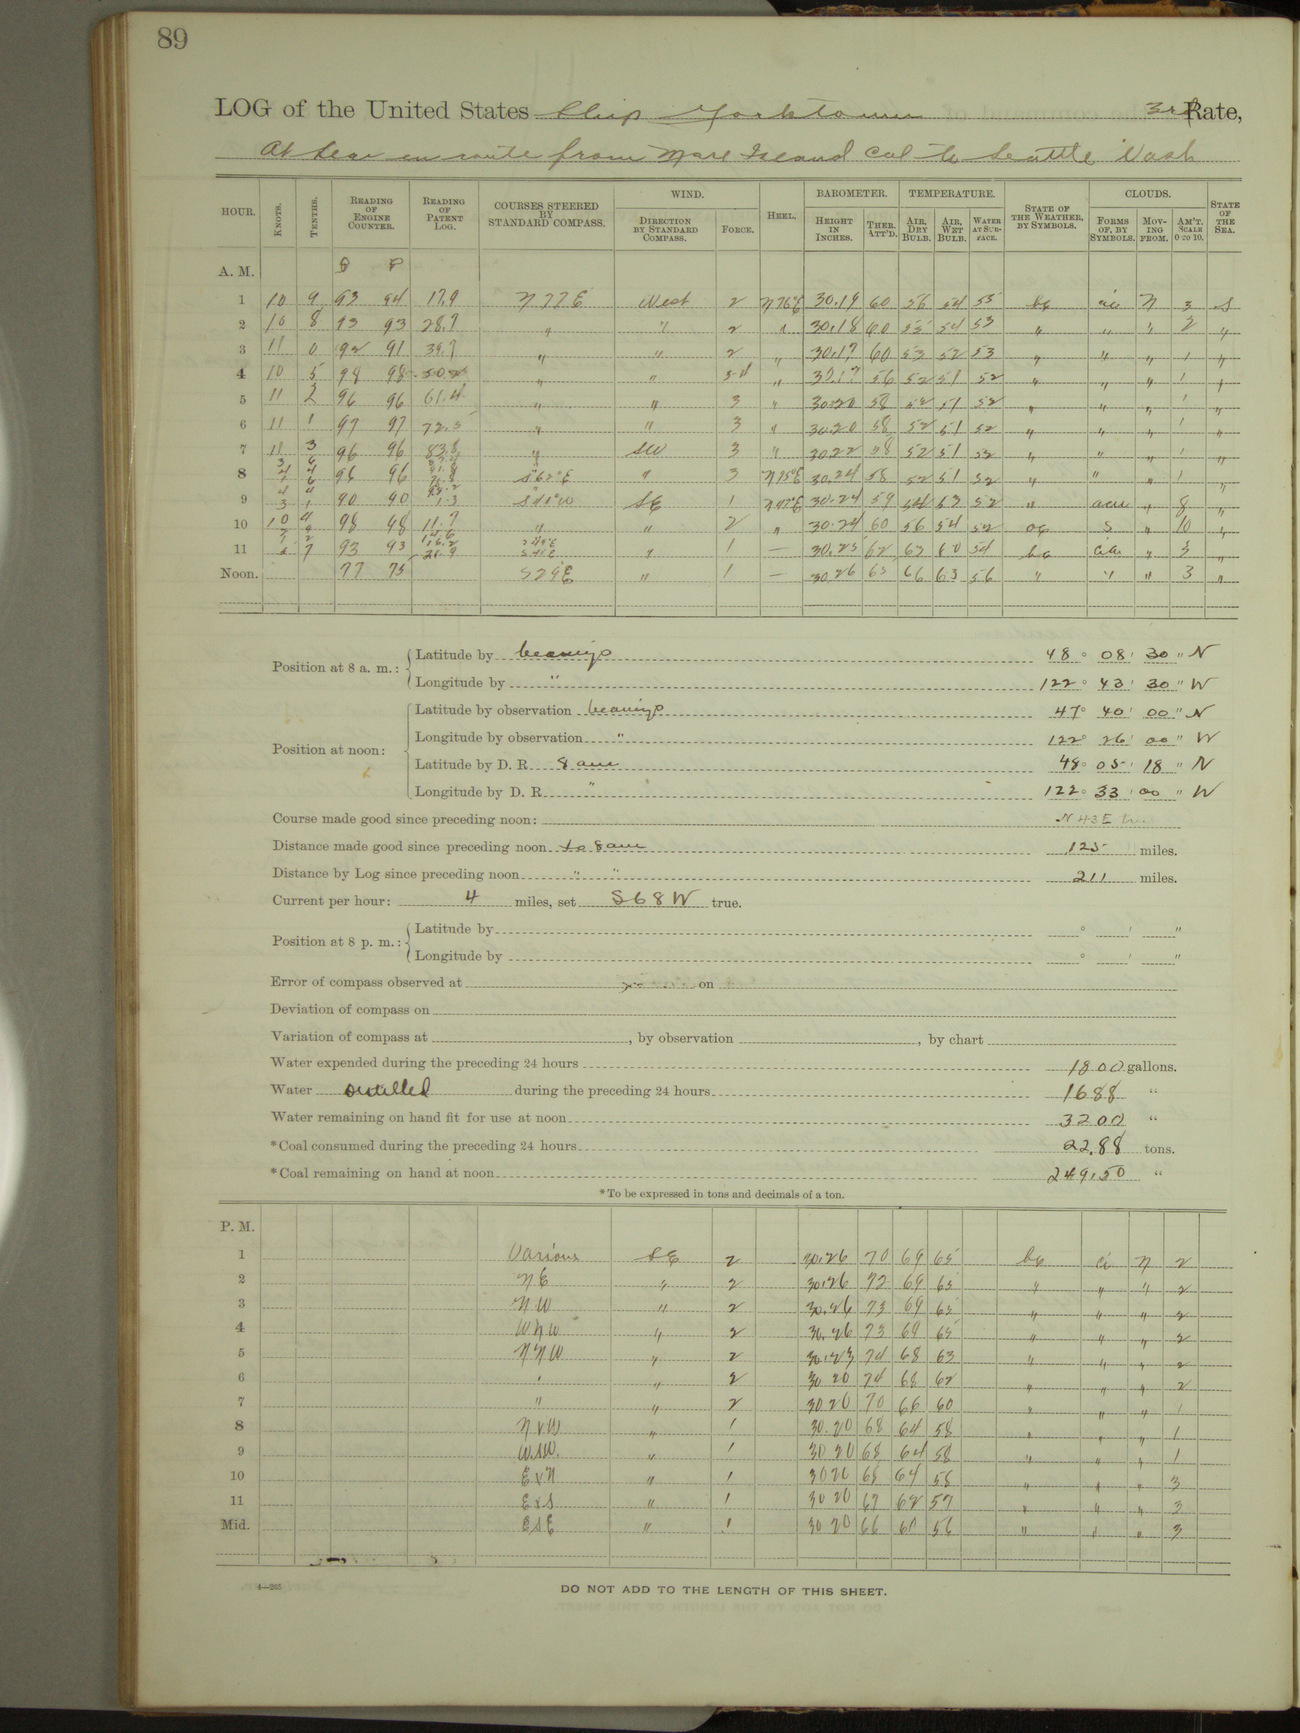 89
LOG of the United States Ship Yorktown 3rd Rate,
At Sea en route from Mare Island Cal to Seattle Wash
HOUR. KNOTS. TENTHS. READING OF ENGINE COUNTER. READING OF PATENT LOG. COURSES STEERED BY STANDARD COMPASS. WIND. DIRECTION BY STANDARD COMPASS. FORCE. HEEL. BAROMETER. HEIGHT IN INCHES. THER. ATT'D. TEMPERATURE. AIR, DRY BULB. AIR, WET BULB. WATER AT SURFACE. STATE OF THE WEATHER, BY SYMBOLS. CLOUDS. FORMS OF, BY SYMBOLS. MOVING FROM. AM'T. SCALE 0 TO 10. STATE OF THE SEA.
A. M. S P
1 10 9 93 94 17.9 N 77 E West 2 N 76°E 30.19 60 56 54 55 bc N 3 S
2 10 8 93 93 28.7 " " 2 " 30.18 60 55 54 53 " " " 2 "
3 11 0 92 91 39.7 " " 2 " 30.17 60 53 52 53 " " " 1 "
4 10 5 98 98 50.2 " " 3-4 " 30.17 56 52 51 52 " " " 1 "
5 11 2 96 96 61.4 " " 3 " 30.20 58 52 51 52 " " " 1 "
6 11 1 97 97 72.5 " " 3 " 30.20 58 52 51 52 " " " 1 "
7 11 3 96 96 83.8 " SW 3 " 30.22 58 52 51 52 " " " 1 "
8 96 96 S 62° E " 3 N 75°E 30.24 58 52 51 52 " " " 1 "
9 90 90 1.3 SE 1 30.24 59 52 " " 8 "
10 98 98 11.7 " " 2 " 30.24 60 56 54 52 oc S " 10 "
11 93 93 " 1 — 30.25 62 63 60 54 bc " 3 "
Noon. 77 75 S 29 E " 1 — 30.26 65 66 63 56 " " " 3 "
Position at 8 a. m.: Latitude by bearings 48° 08' 30" N
Longitude by " 122° 43' 30" W
Position at noon: Latitude by observation bearings 47° 40' 00" N
Longitude by observation " 122° 26' 00" W
Latitude by D. R. 8 am 48° 05' 18" N
Longitude by D. R. " 122° 33' 00" W
Course made good since preceding noon: N 43 E
Distance made good since preceding noon to 8 am 125 miles.
Distance by Log since preceding noon " " 211 miles.
Current per hour: 4 miles, set S 68 W true.
Position at 8 p. m.: Latitude by ° ' "
Longitude by ° ' "
Error of compass observed at on
Deviation of compass on
Variation of compass at , by observation , by chart
Water expended during the preceding 24 hours 1800 gallons.
Water distilled during the preceding 24 hours 1688 "
Water remaining on hand fit for use at noon 3200 "
*Coal consumed during the preceding 24 hours 22.88 tons.
*Coal remaining on hand at noon 249.50 "
*To be expressed in tons and decimals of a ton.
P. M.
1 Various SE 2 30.26 70 69 65 bc ci N 2
2 NE " 2 30.26 72 69 65 " " " 2
3 NW " 2 30.26 73 69 65 " " " 2
4 WNW " 2 30.26 73 69 65 " " " 2
5 NNW " 2 30.23 74 68 63 " " " 2
6 " " 2 30 20 74 68 62 " " " 2
7 " " 2 30 20 70 66 60 " " " 1
8 N x W " 1 30.20 68 64 58 " " " 1
9 WSW. " 1 30 20 68 64 58 " " " 1
10 E x N " 1 30 20 68 64 58 " " " 3
11 E x S " 1 30 20 67 62 57 " " " 3
Mid. ESE " 1 30 20 66 60 56 " " " 3
4—265
DO NOT ADD TO THE LENGTH OF THIS SHEET.